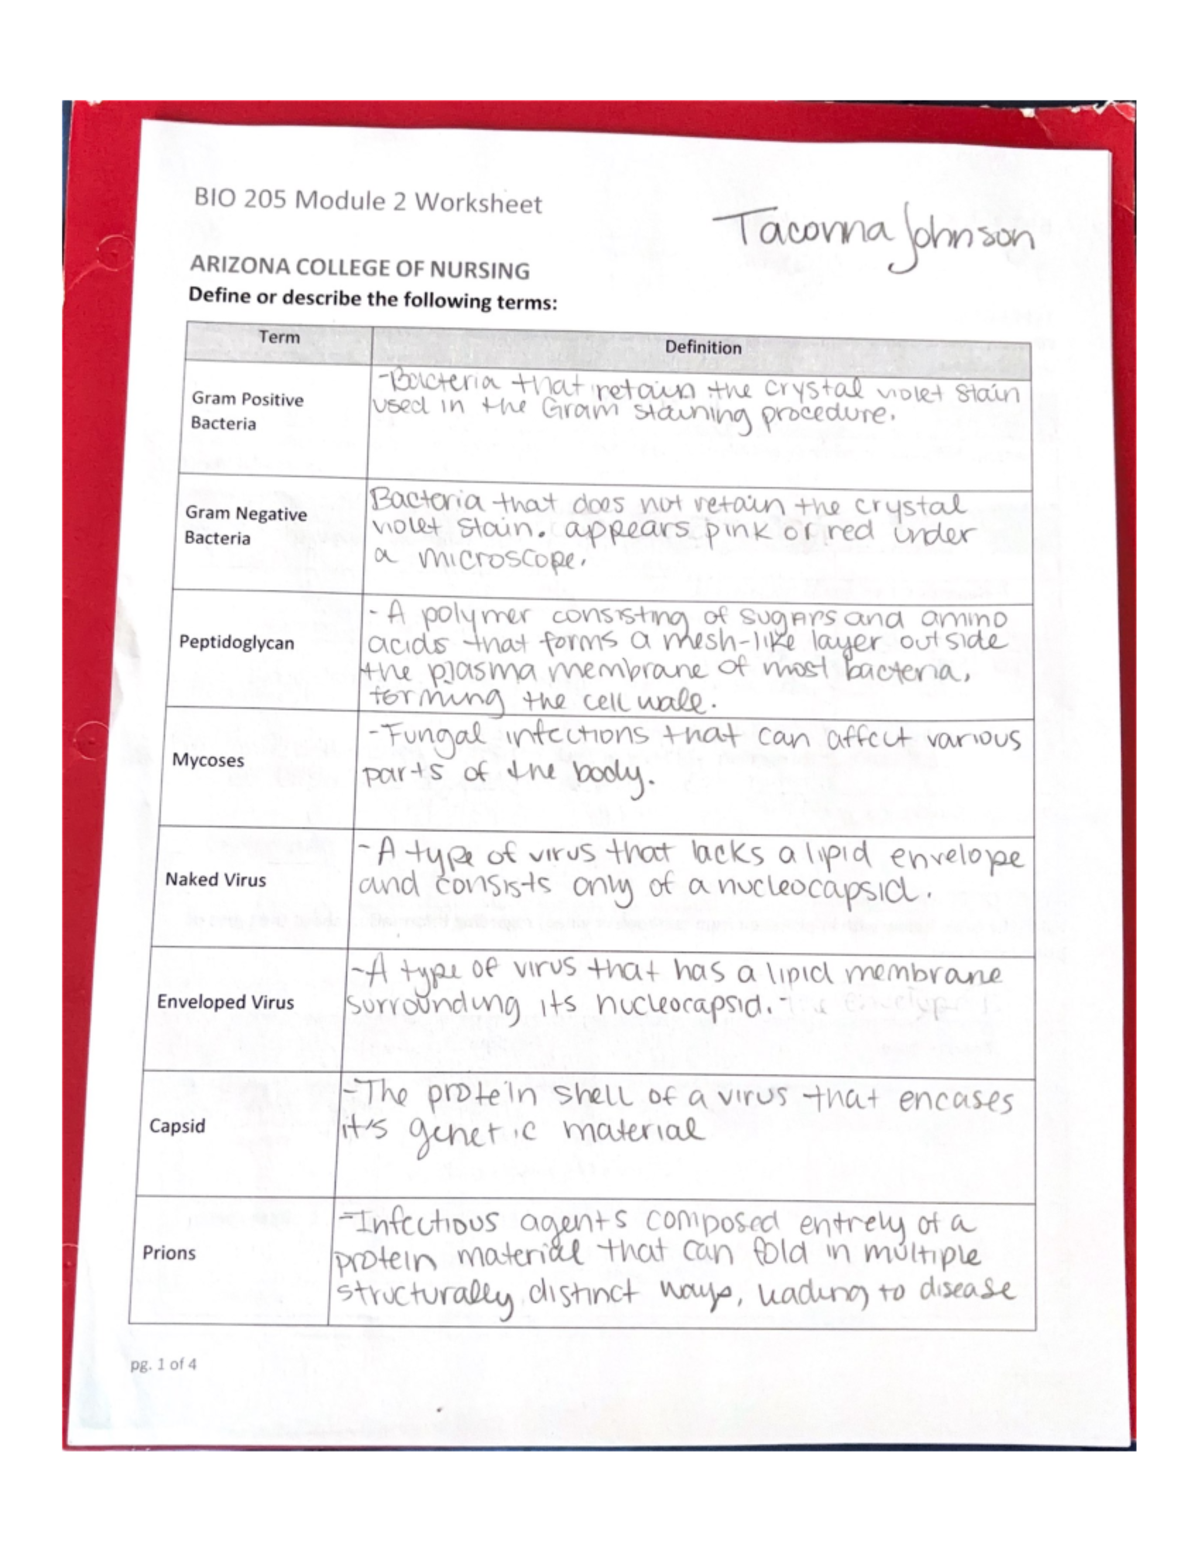 BIO 205 Module 2 Worksheet
Taconna Johnson
ARIZONA COLLEGE OF NURSING
Define or describe the following terms:
Term
Definition
Gram Positive
Bacteria
-Bacteria that retain the crystal violet stain
used in the Gram staining procedure.
Gram Negative
Bacteria
Bacteria that does not retain the crystal
violet stain. appears pink or red under
a microscope.
Peptidoglycan
- A polymer consisting of sugars and amino
acids that forms a mesh-like layer outside
the plasma membrane of most bacteria,
forming the cell wall.
Mycoses
-Fungal infections that can affect various
parts of the body.
Naked Virus
-A type of virus that lacks a lipid envelope
and consists only of a nucleocapsid.
Enveloped Virus
-A type of virus that has a lipid membrane
surrounding its nucleocapsid. -
Capsid
-The protein shell of a virus that encases
it's genetic material
Prions
-Infectious agents composed entirely of a
protein material that can fold in multiple
structurally distinct ways, leading to disease
pg. 1 of 4